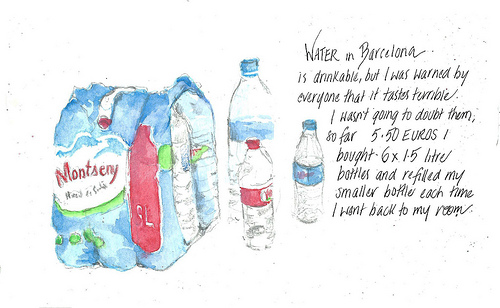 WATER in Barcelona
is drinkable, but I was warned by
everyone that it tastes terrible.
I wasn't going to doubt them,
so far 5.50 EUROS I
bought 6 x 1.5 litre
bottles and refilled my
smaller bottle each time
I went back to my room.
Montseny
5L